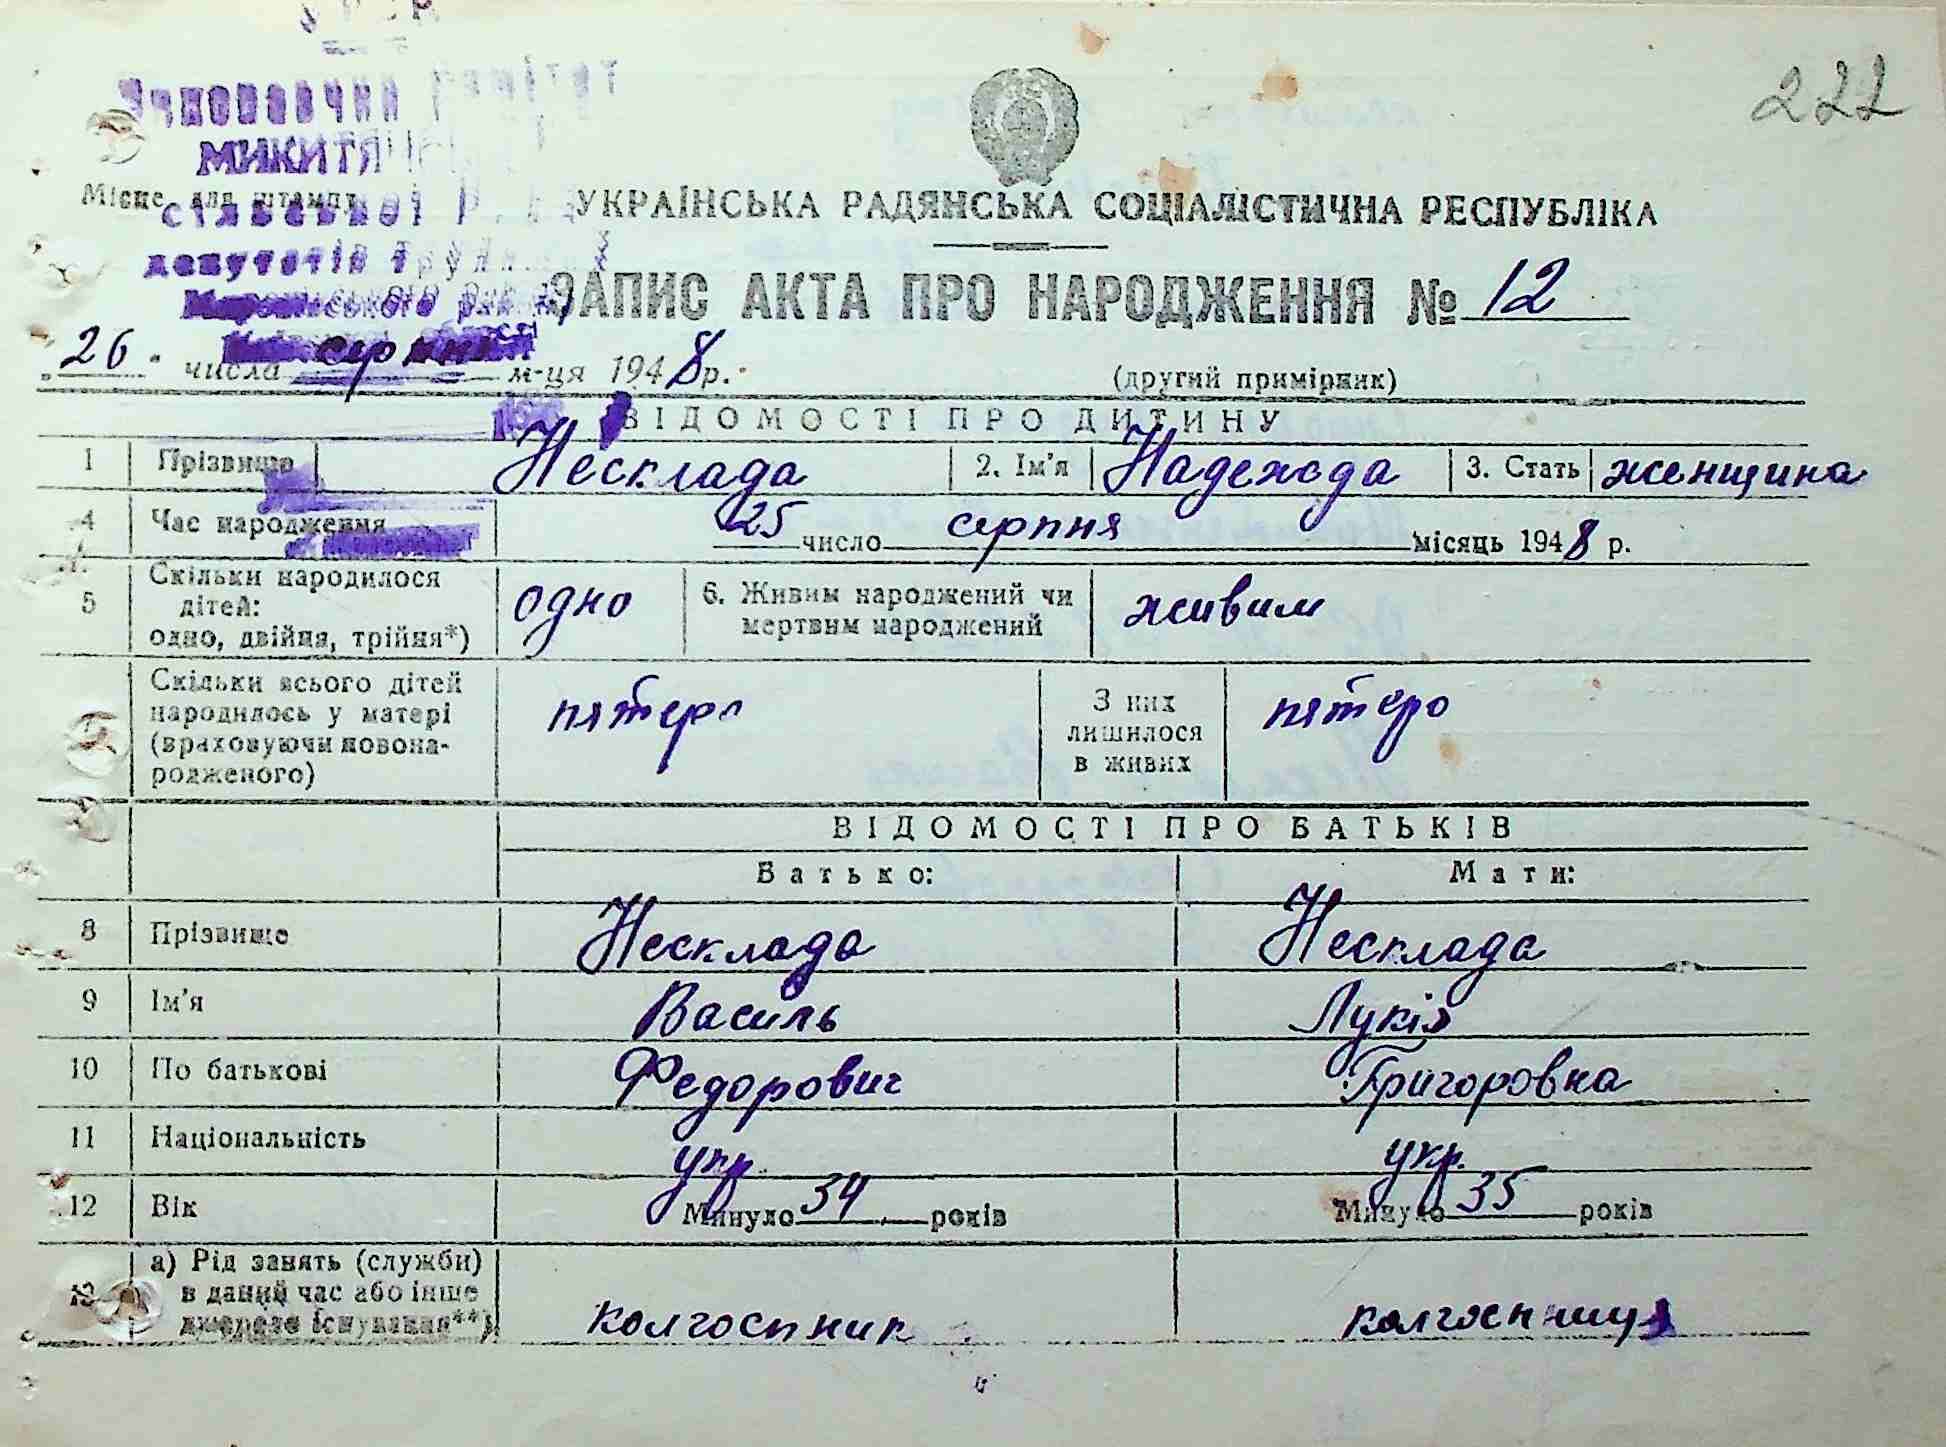 222
Виконавчий комітет
МИКИТЯНСЬКОЇ
Місце для штампу
сільської Ради
депутатів трудящих
УКРАЇНСЬКА РАДЯНСЬКА СОЦІАЛІСТИЧНА РЕСПУБЛІКА
ЗАПИС АКТА ПРО НАРОДЖЕННЯ № 12
„26" числа серпня м-ця 1948 р.
(другий примірник)
ВІДОМОСТІ ПРО ДИТИНУ
1 Прізвище Несклада 2. Ім'я Надежда 3. Стать женщина
4 Час народження 25 число серпня місяць 1948 р.
5 Скільки народилося дітей: одно, двійня, трійня*) одно 6. Живим народжений чи мертвим народжений живим
7 Скільки всього дітей народилось у матері (враховуючи новонародженого) пятеро З них лишилося в живих пятеро
ВІДОМОСТІ ПРО БАТЬКІВ
Батько: Мати:
8 Прізвище Несклада Несклада
9 Ім'я Василь Лукія
10 По батькові Федорович Григоровна
11 Національність укр. укр.
12 Вік Минуло 34 років Минуло 35 років
13 а) Рід занять (служби) в даний час або інше джерело існування**) колгоспник колгоспниця